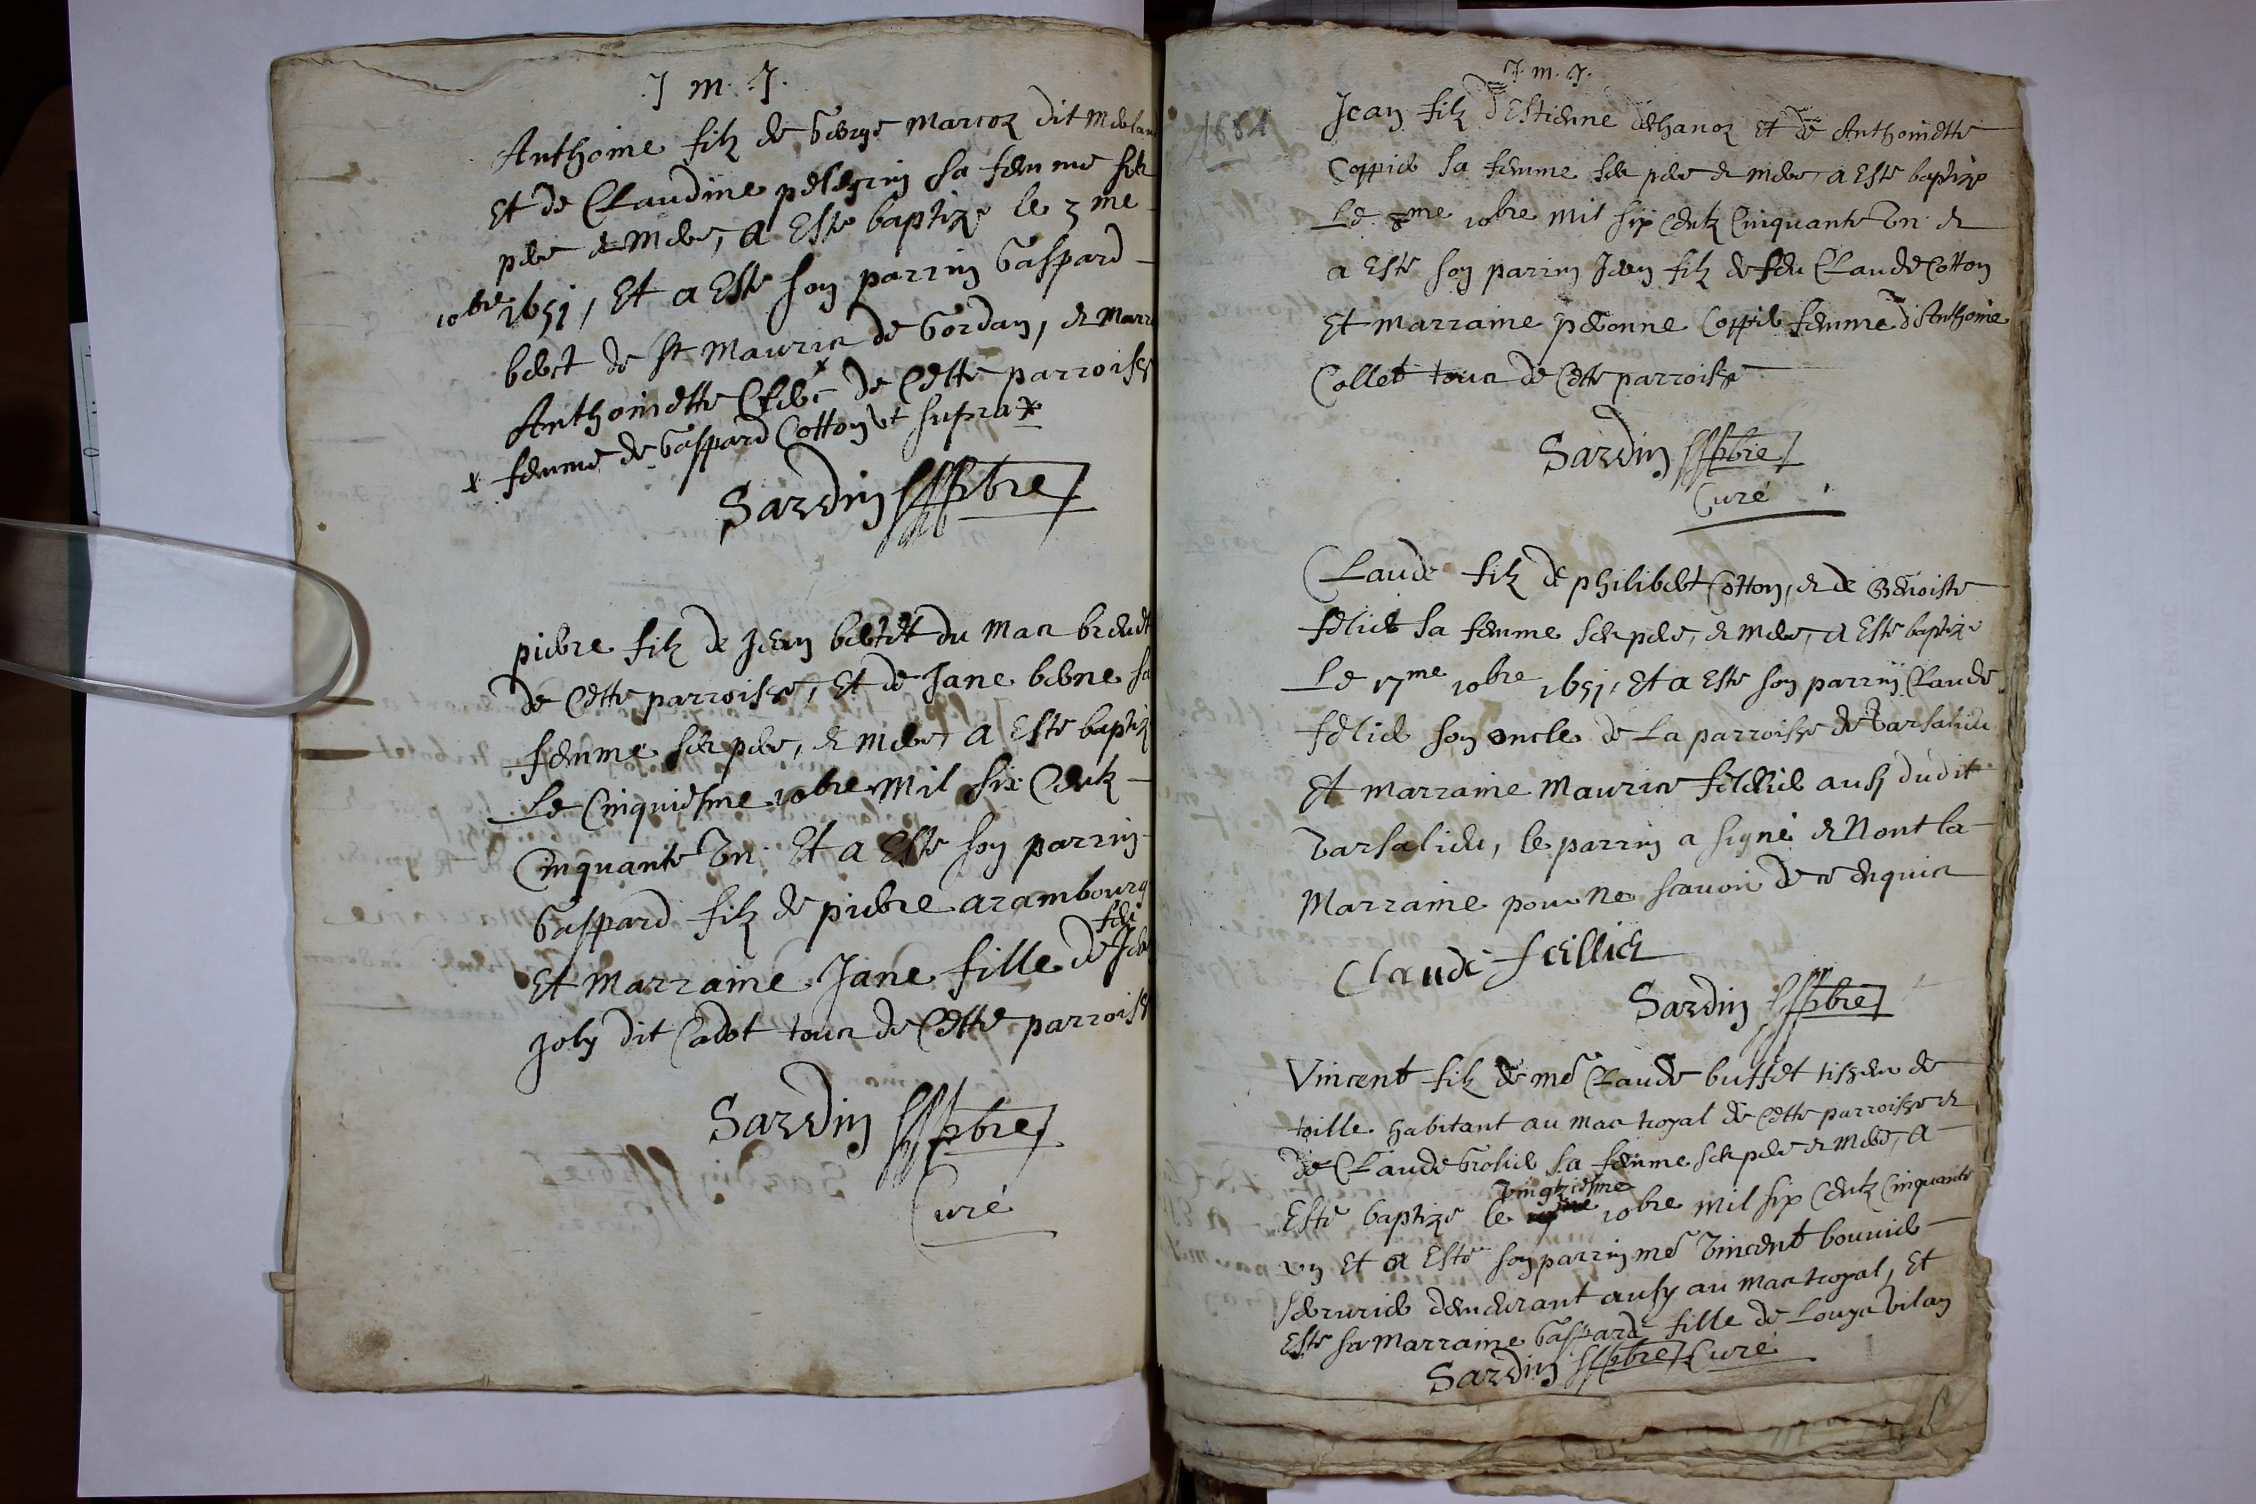 J. m. J.
Anthoine filz de George marcoz dit
Et de Claudine pelegrin sa femme ses
pere & mere, a Este baptize le 3me
10bre 1651, Et a Este son parrin Gaspard
de st Mauris de Gordan, &
Anthoinette Clerc x de Cette parroisse
x femme de Gaspard Cotton ut supra x
Sardin pbre
pierre filz de Jean bertet du mas
de Cette parroisse, Et de Jane berne sa
femme ses pere, & mere, a Este baptiz
Le Cinquiesme 10bre Mil six Centz
Cinquante Un Et a Este son parrin
Gaspard filz de pierre arambourg
feu
Et marraine Jane fille de
Joly dit Cadot tous de Cette parroisse
Sardin pbre
Curé
J. m. J.
Jean filz d'Estienne dehanoz Et de Anthoinette
Coppier sa femme ses pere & mere, a Este baptize
Le 8me 10bre mil six Centz Cinquante Un &
a Este son parrin Jean filz de feu Claude Cotton
Et marraine peronne Coppier femme d'Anthoine
Collet tous de Cette parroisse
Sardin pbre
Curé
Claude filz de philibert Cotton, & de Benoiste
felier sa femme ses pere, & mere, a Este baptize
Le 17me 10bre 1651, Et a Este son parrin Claude
felier son oncle de La parroisse de Varsalieu
Et marraine Maurise felier aussy dudit
Varsalieu, le parrin a signé & Non la
Marraine pour ne scavoir de ce enquise
Claude feillier
Sardin pbre
Vincent filz de me Claude buffet tisseur de
toille habitant au mas royal de Cette parroisse &
de Claude Grosier sa femme ses pere & mere, a
vingtiesme
Este baptize le 10bre mil six Centz Cinquante
un Et a Este son parrin me Vincent bouvier
serrurier demeurant aussy au mas royal, Et
Este sa Marraine Gasparde fille de Louys vilan
Sardin pbre Curé